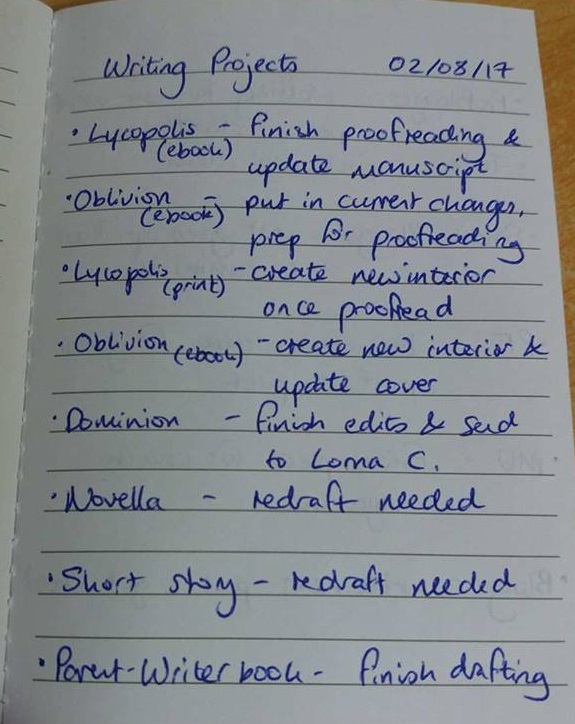 Writing Projects 02/08/17
• Lycopolis - finish proofreading &
(ebook) update manuscript
• Oblivion - put in current changes,
(ebook) prep for proofreading
• Lycopolis (print) - create new interior
once proofread
• Oblivion (ebook) - create new interior &
update cover
• Dominion - finish edits & send
to Lorna C.
• Novella - redraft needed
• Short story - redraft needed
• Parent-Writer book - finish drafting